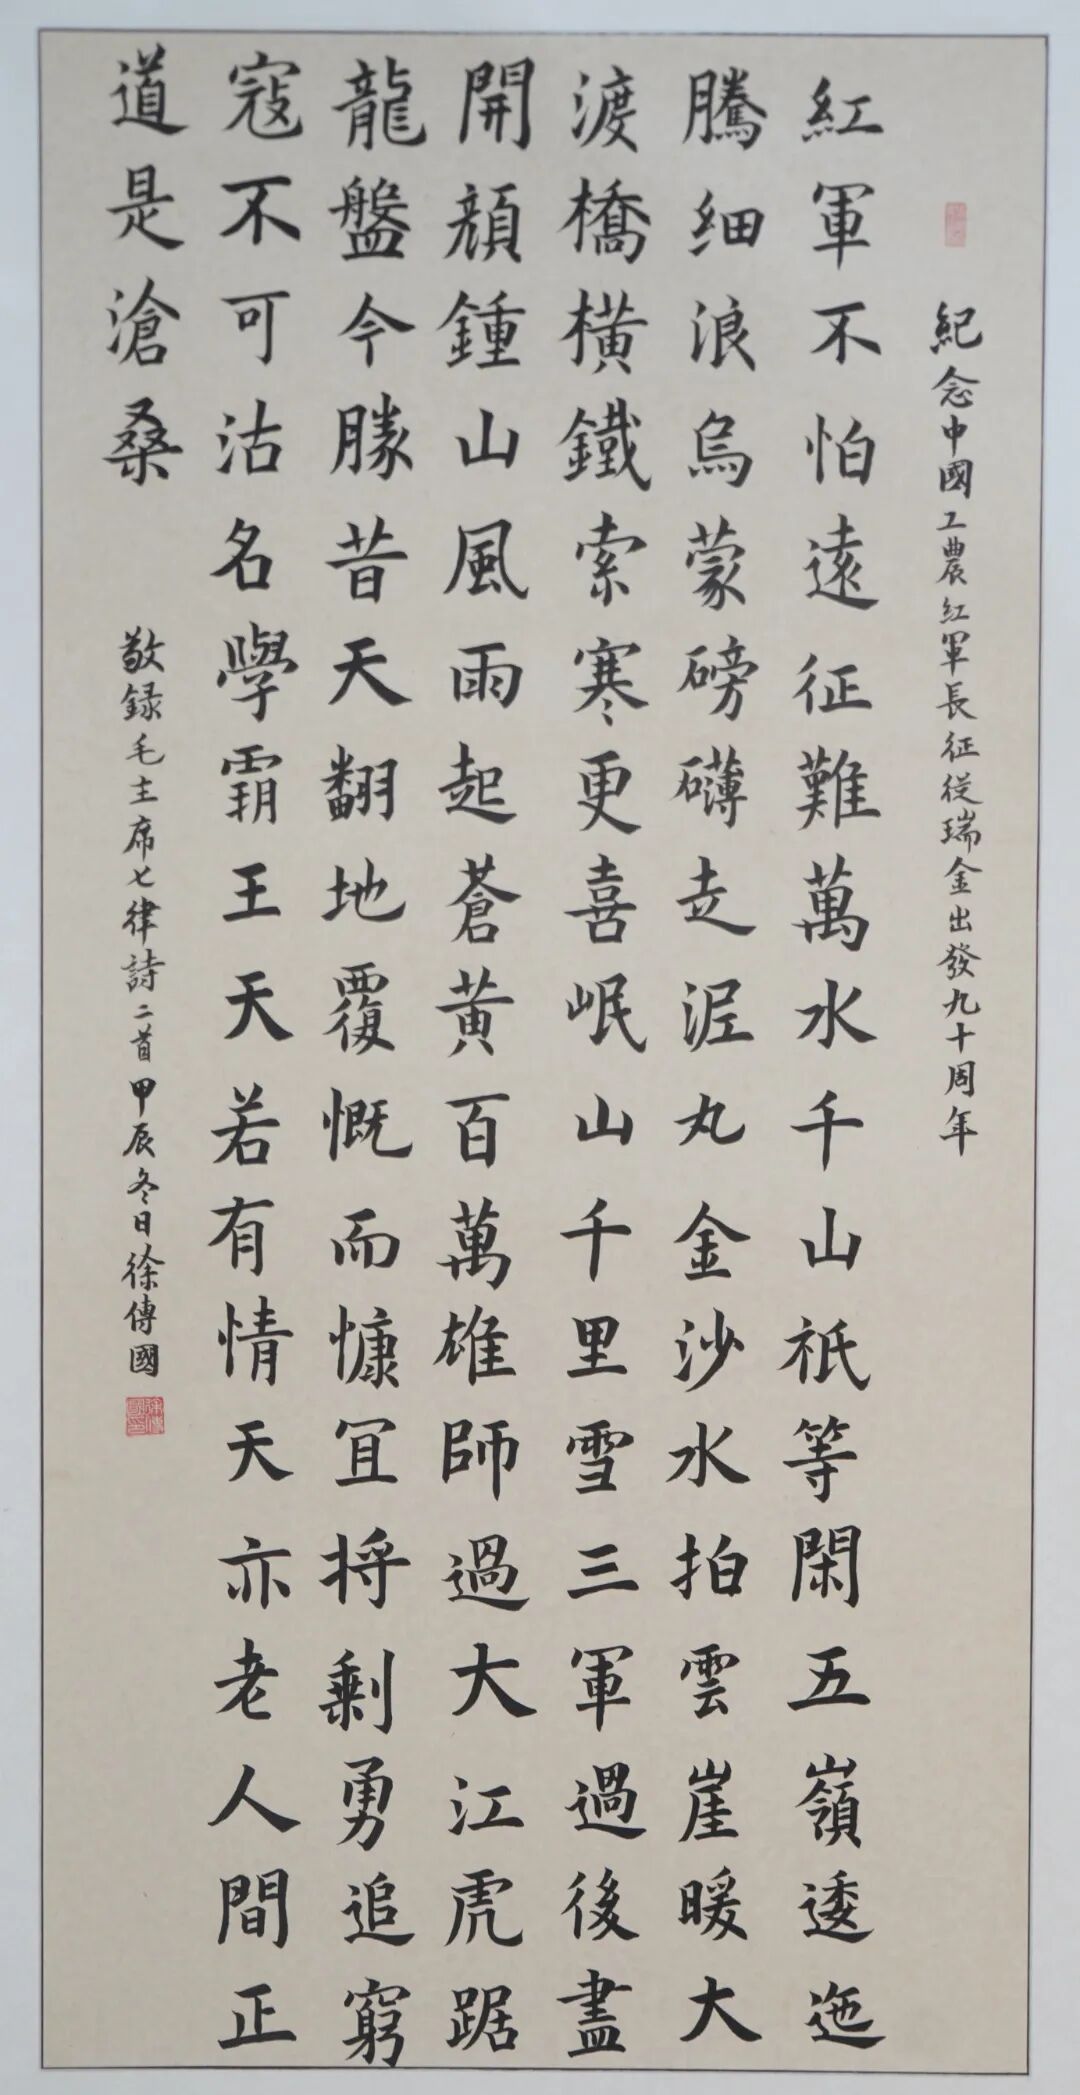 紀念中國工農紅軍長征從瑞金出發九十周年
紅軍不怕遠征難萬水千山祇等閑五嶺逶迤
騰細浪烏蒙磅礴走泥丸金沙水拍雲崖暖大
渡橋橫鐵索寒更喜岷山千里雪三軍過後盡
開顏鍾山風雨起蒼黃百萬雄師過大江虎踞
龍盤今勝昔天翻地覆慨而慷宜將剩勇追窮
寇不可沽名學霸王天若有情天亦老人間正
道是滄桑
敬録毛主席七律詩二首甲辰冬日徐傳國